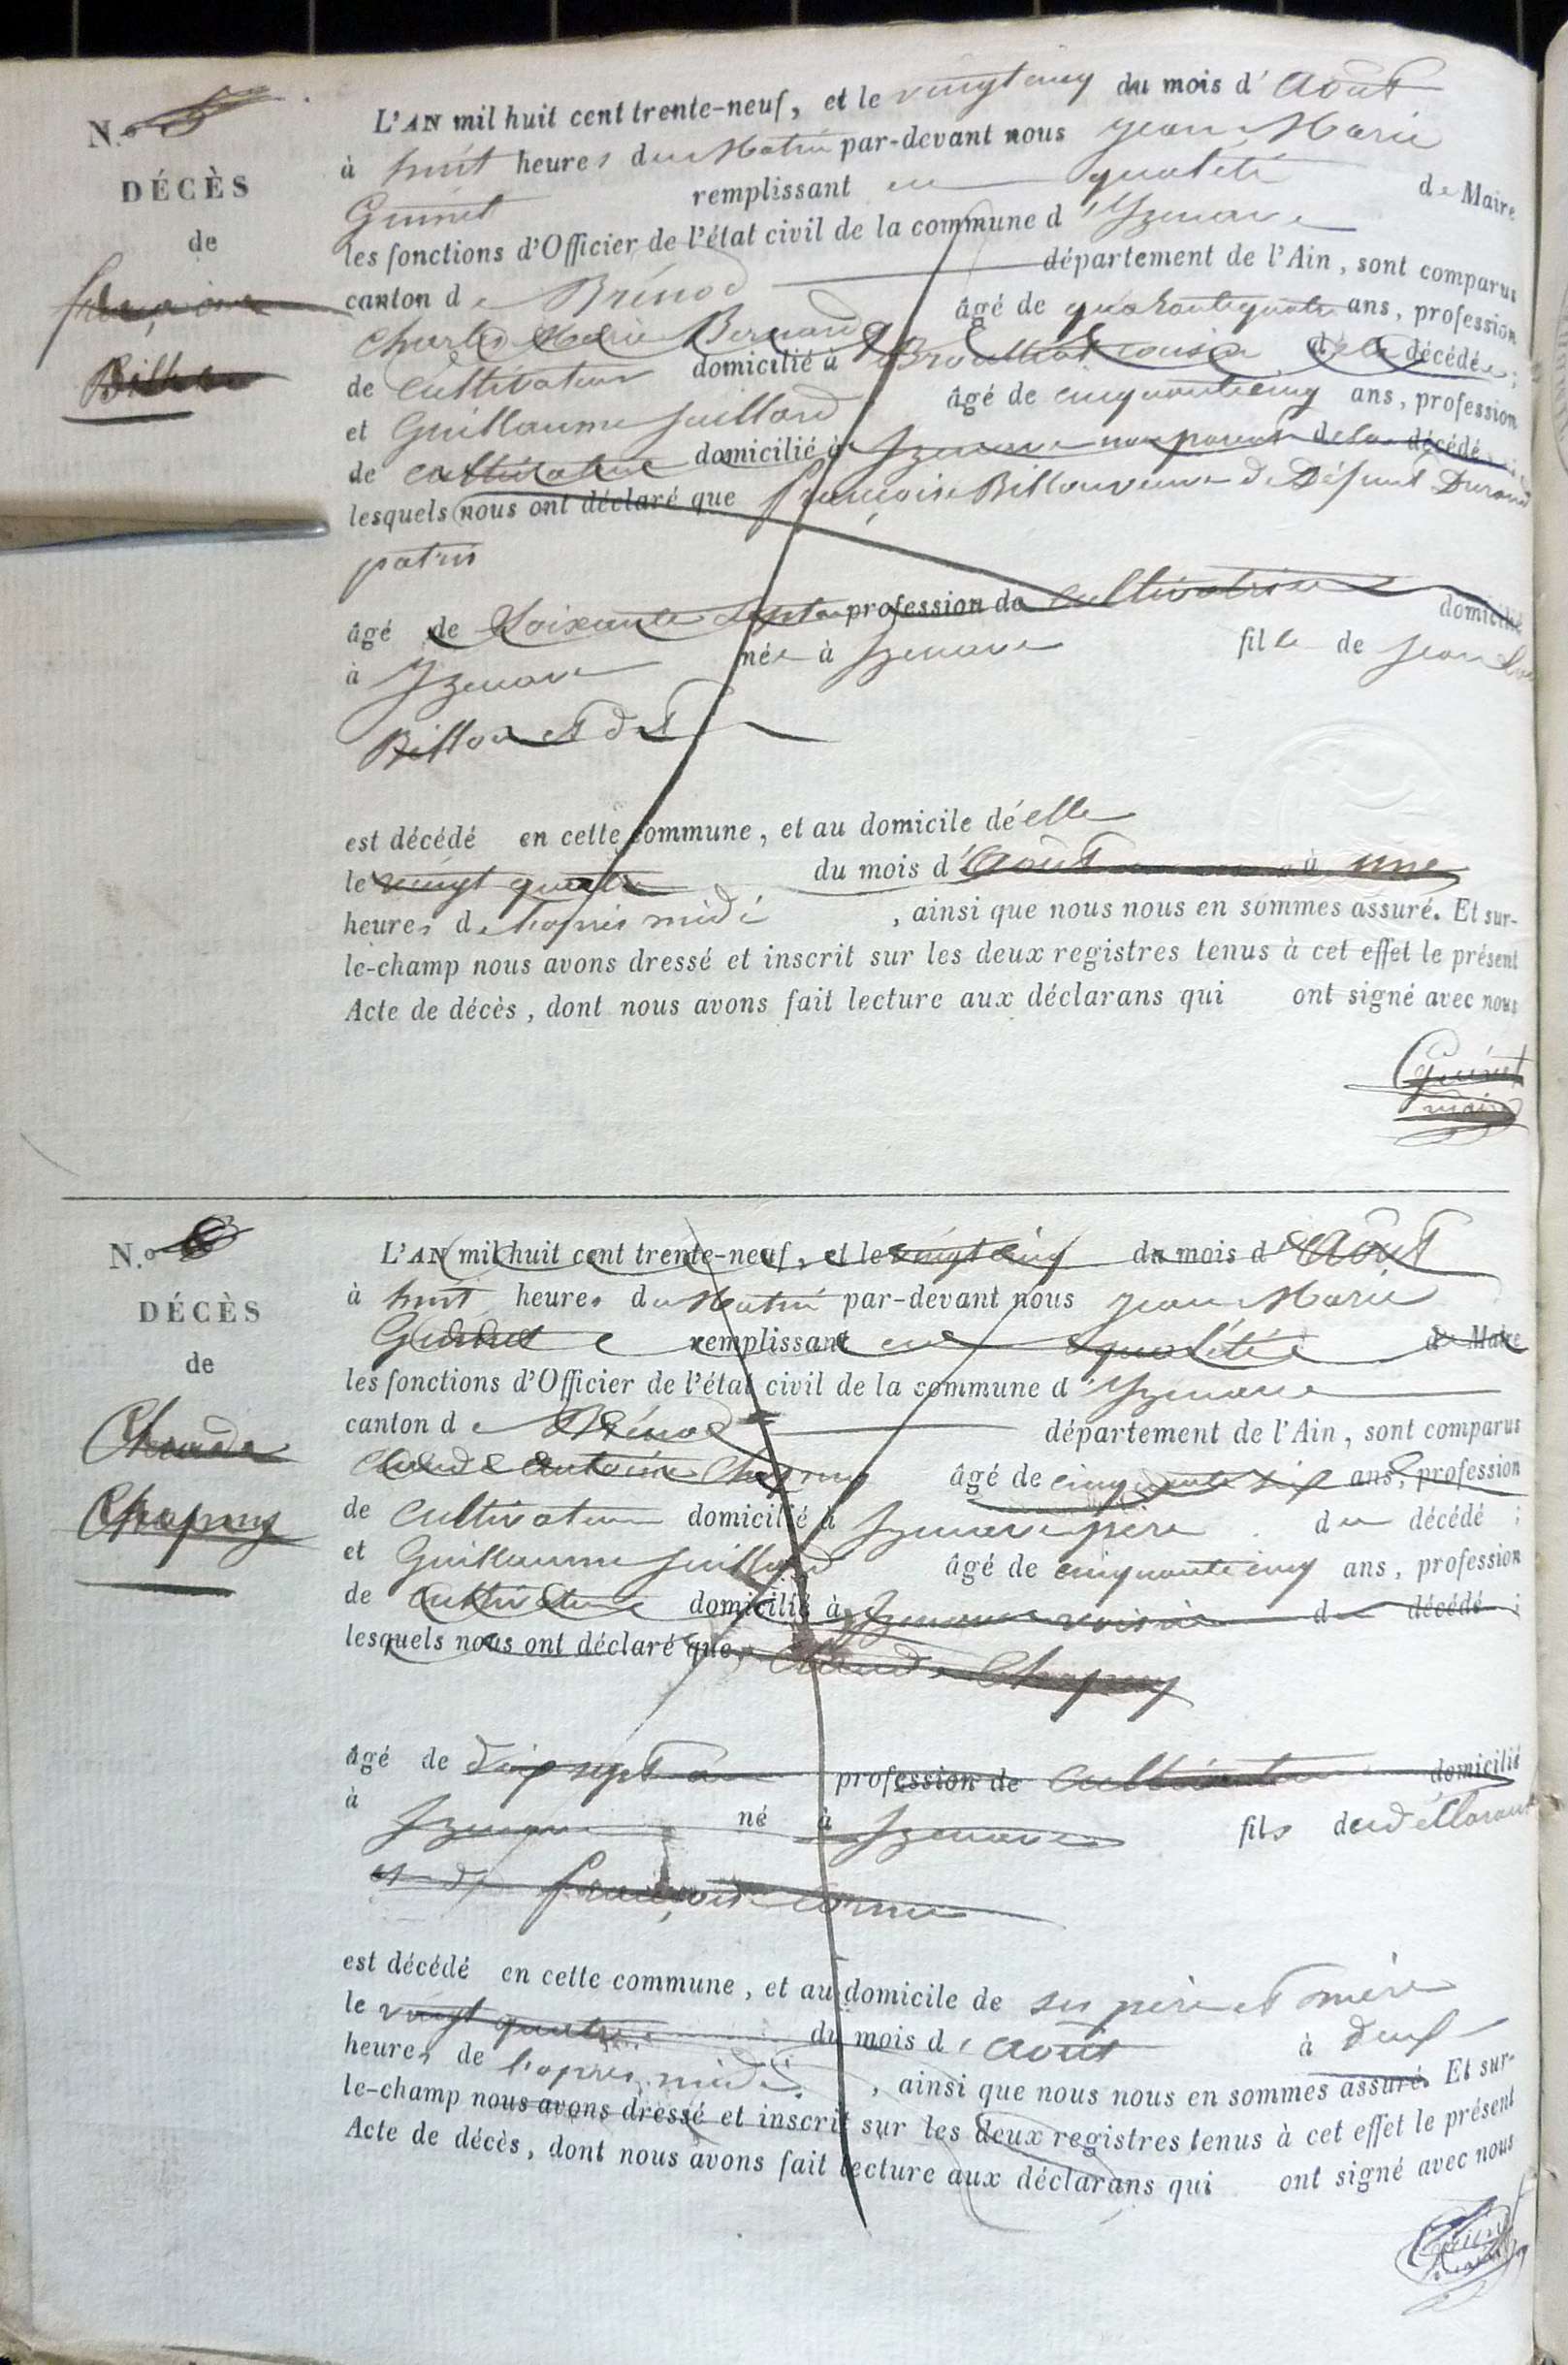 N.o 5
DÉCÈS
de
françoise
Billon
L'AN mil huit cent trente-neuf, et le vingt cinq du mois d'Août
à huit heures du Matin par-devant nous Jean Marie
Guinet remplissant en qualité de Maire
les fonctions d'Officier de l'état civil de la commune d'Izenave
canton de Brénod département de l'Ain, sont comparus
Charles Marie Bernard âgé de quarante quatre ans, profession
de Cultivateur domicilié à cousin de la décédée;
et Guillaume Juillard âgé de cinquante cinq ans, profession
de cultivateur domicilié à Izenave non parent de la décédée;
lesquels nous ont déclaré que françoise Billon veuve de Défunt Durand
patris
âgé de Soixante Sept an profession de cultivatrice domicilié
à Izenave née à Izenave fille de Jean
Billon et de
est décédé en cette commune, et au domicile d'elle
le vingt quatre du mois d'Août à une
heures de l'après midi, ainsi que nous nous en sommes assuré. Et sur-
le-champ nous avons dressé et inscrit sur les deux registres tenus à cet effet le présent
Acte de décès, dont nous avons fait lecture aux déclarans qui ont signé avec nous
Guinet
maire
N.o 6
DÉCÈS
de
Claude
Chapuy
L'AN mil huit cent trente-neuf, et le vingt cinq du mois d'Août
à huit heures du Matin par-devant nous Jean Marie
Guinet remplissant en qualité de Maire
les fonctions d'Officier de l'état civil de la commune d'Izenave
canton de Brénod département de l'Ain, sont comparus
Claude Antoine Chapuy âgé de cinquante six ans, profession
de Cultivateur domicilié à Izenave père du décédé;
et Guillaume Juillard âgé de cinquante cinq ans, profession
de Cultivateur domicilié à Izenave voisin du décédé;
lesquels nous ont déclaré que Claude Chapuy
âgé de dix sept an profession de Cultivateur domicilié
à Izenave né à Izenave fils du déclarant
et de françoise
est décédé en cette commune, et au domicile de ses père et mère
le vingt quatre du mois d'Août à deux
heures de l'après midi, ainsi que nous nous en sommes assuré. Et sur-
le-champ nous avons dressé et inscrit sur les deux registres tenus à cet effet le présent
Acte de décès, dont nous avons fait lecture aux déclarans qui ont signé avec nous